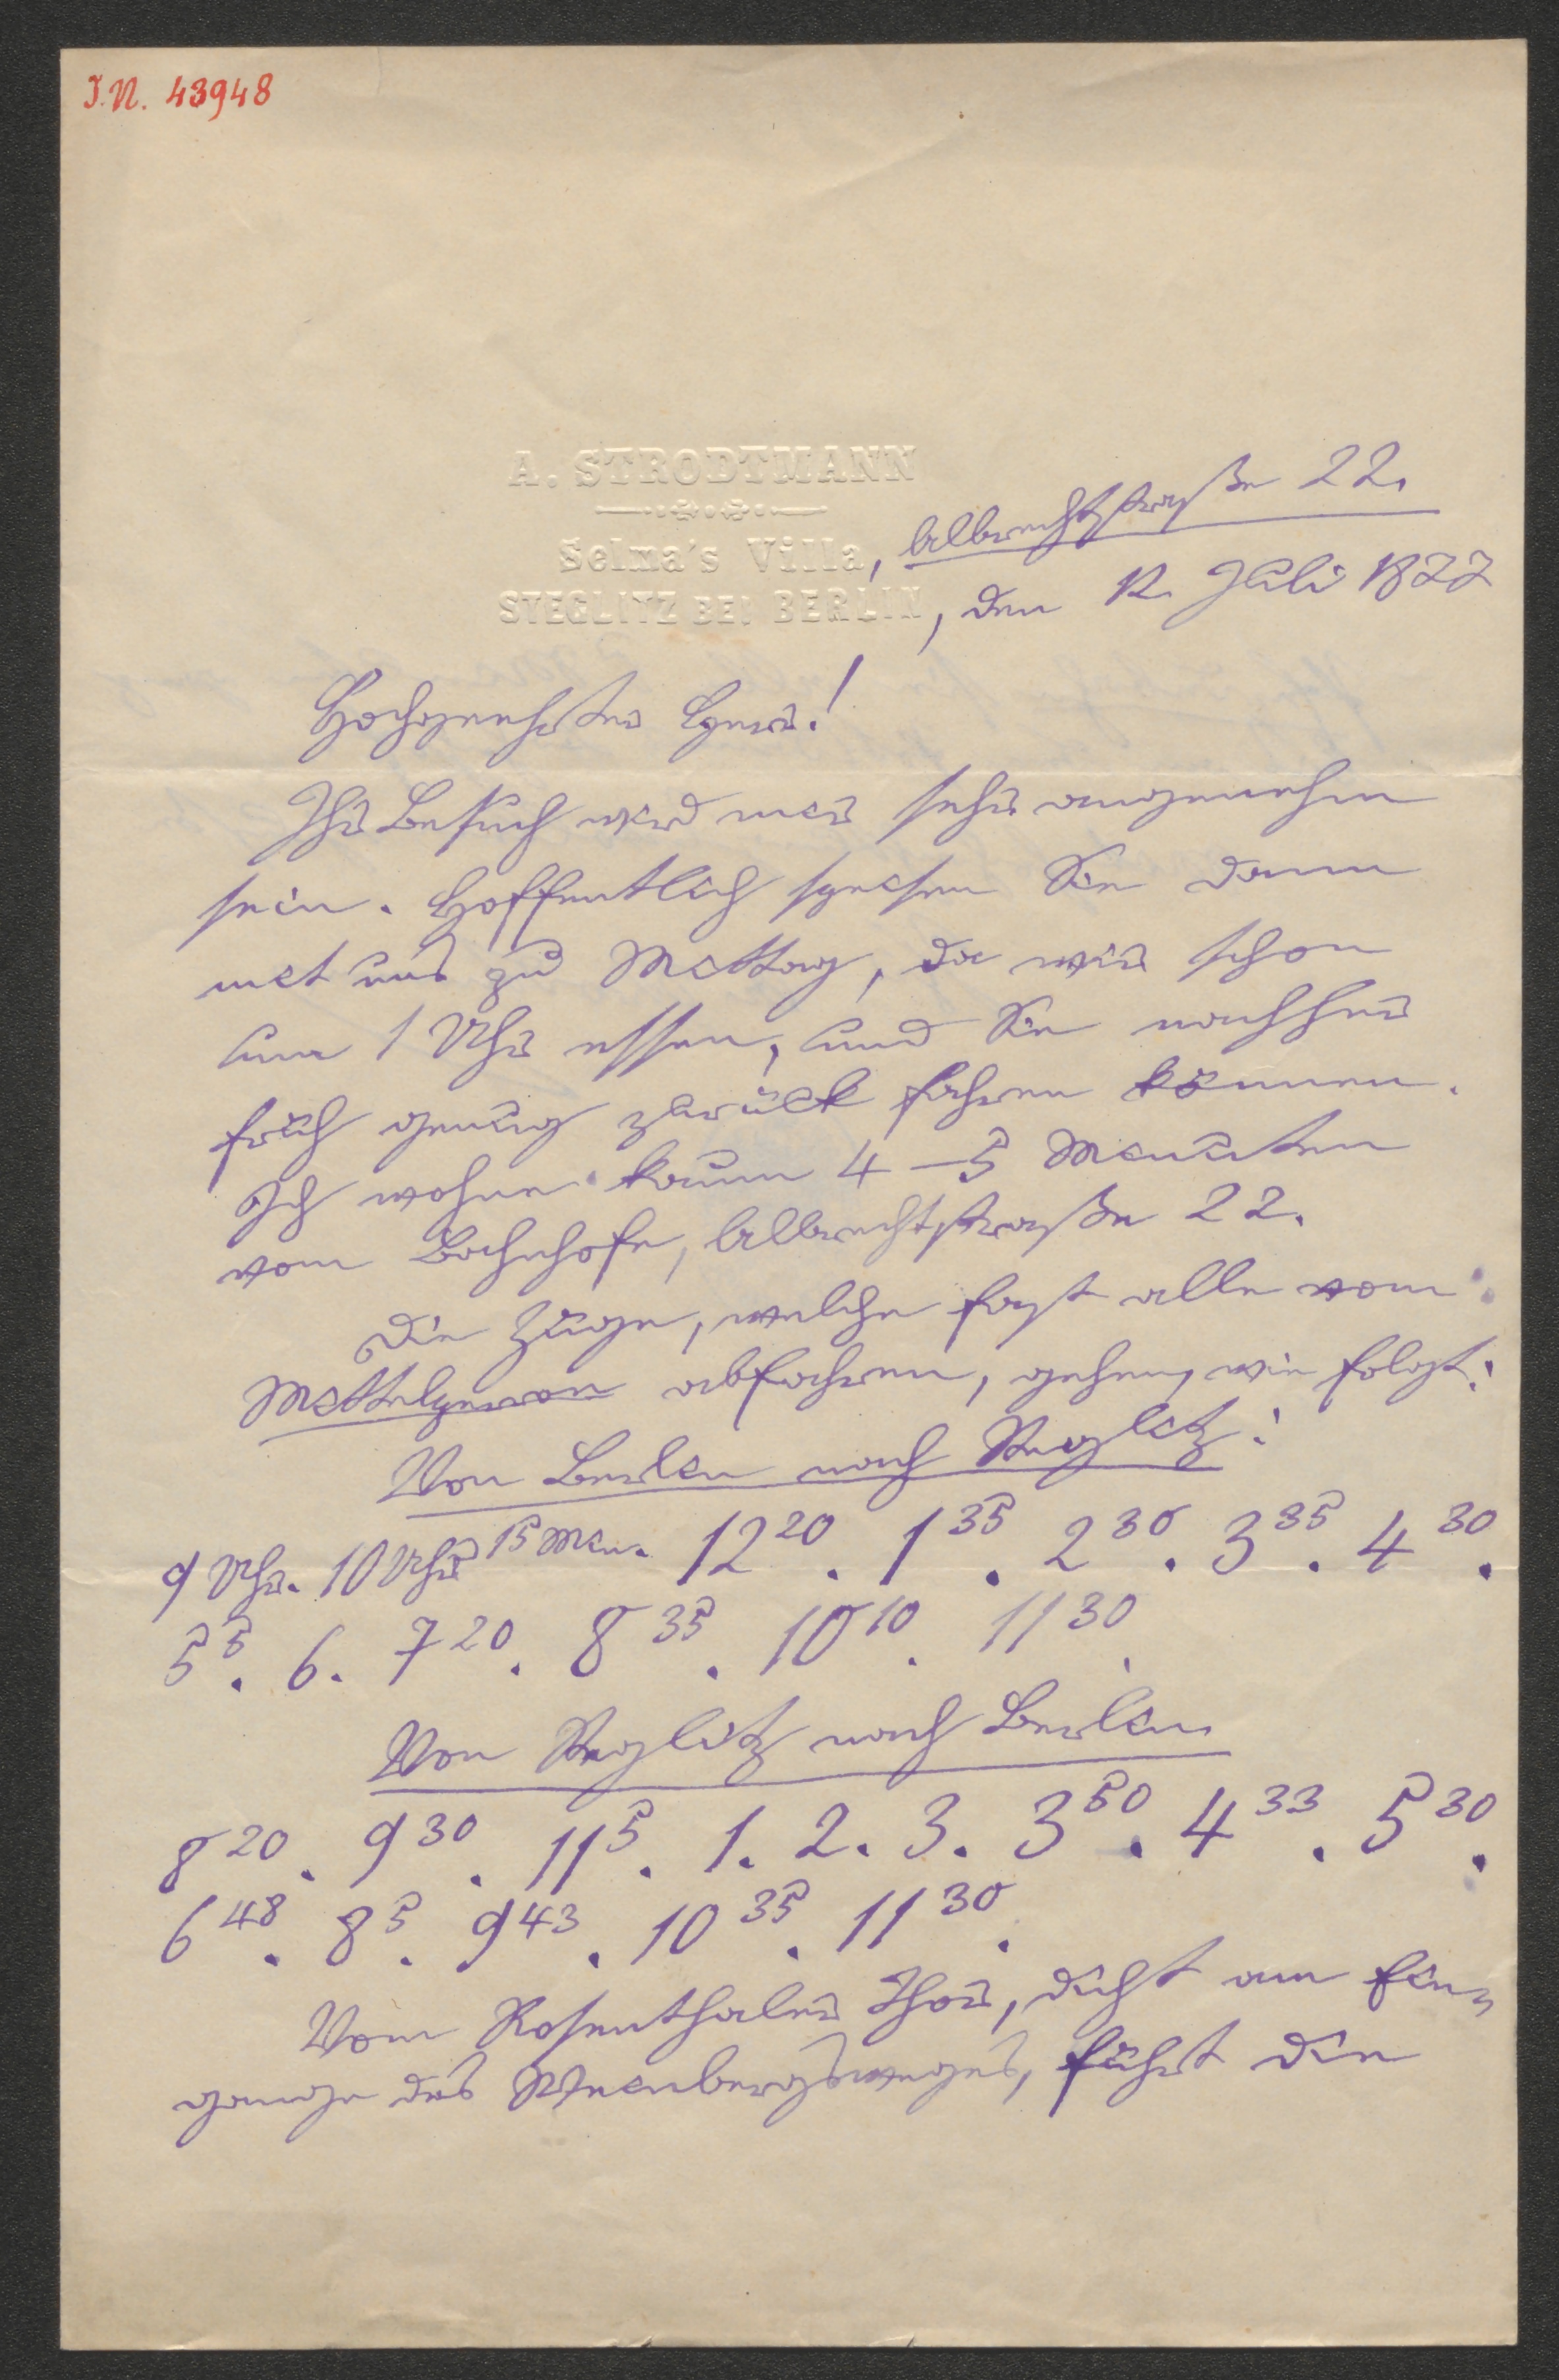 I.N. 43948
A. STRODTMANN
Selma's Villa, Albrechtstraße 22.
STEGLITZ BEI BERLIN, den 12. Juli 1877
Hochgeehrter Herr!
Ihr Besuch wird mir sehr angenehm
sein. Hoffentlich speisen Sie dann
mit uns zu Mittag, da wir schon
um 1 Uhr essen, und Sie nachher
früh genug zurück fahren können.
Ich wohne kaum 4–5 Minuten
vom Bahnhofe, Albrechtstraße 22.
Die Züge, welche fast alle vom
Mittelperron abfahren, gehen, wie folgt:
Von Berlin nach Steglitz:
9 Uhr. 10 Uhr 15 Min. 12 20. 1 35. 2 30. 3 35. 4 30.
5 5. 6. 7 20. 8 35. 10 10. 11 30.
Von Steglitz nach Berlin
8 20. 9 30. 11 5. 1. 2. 3. 3 50. 4 33. 5 30.
6 48. 8 5. 9 43. 10 35. 11 30.
Vom Rosenthaler Thor, dicht am Ein-
gange des Weinbergsweges, führt die